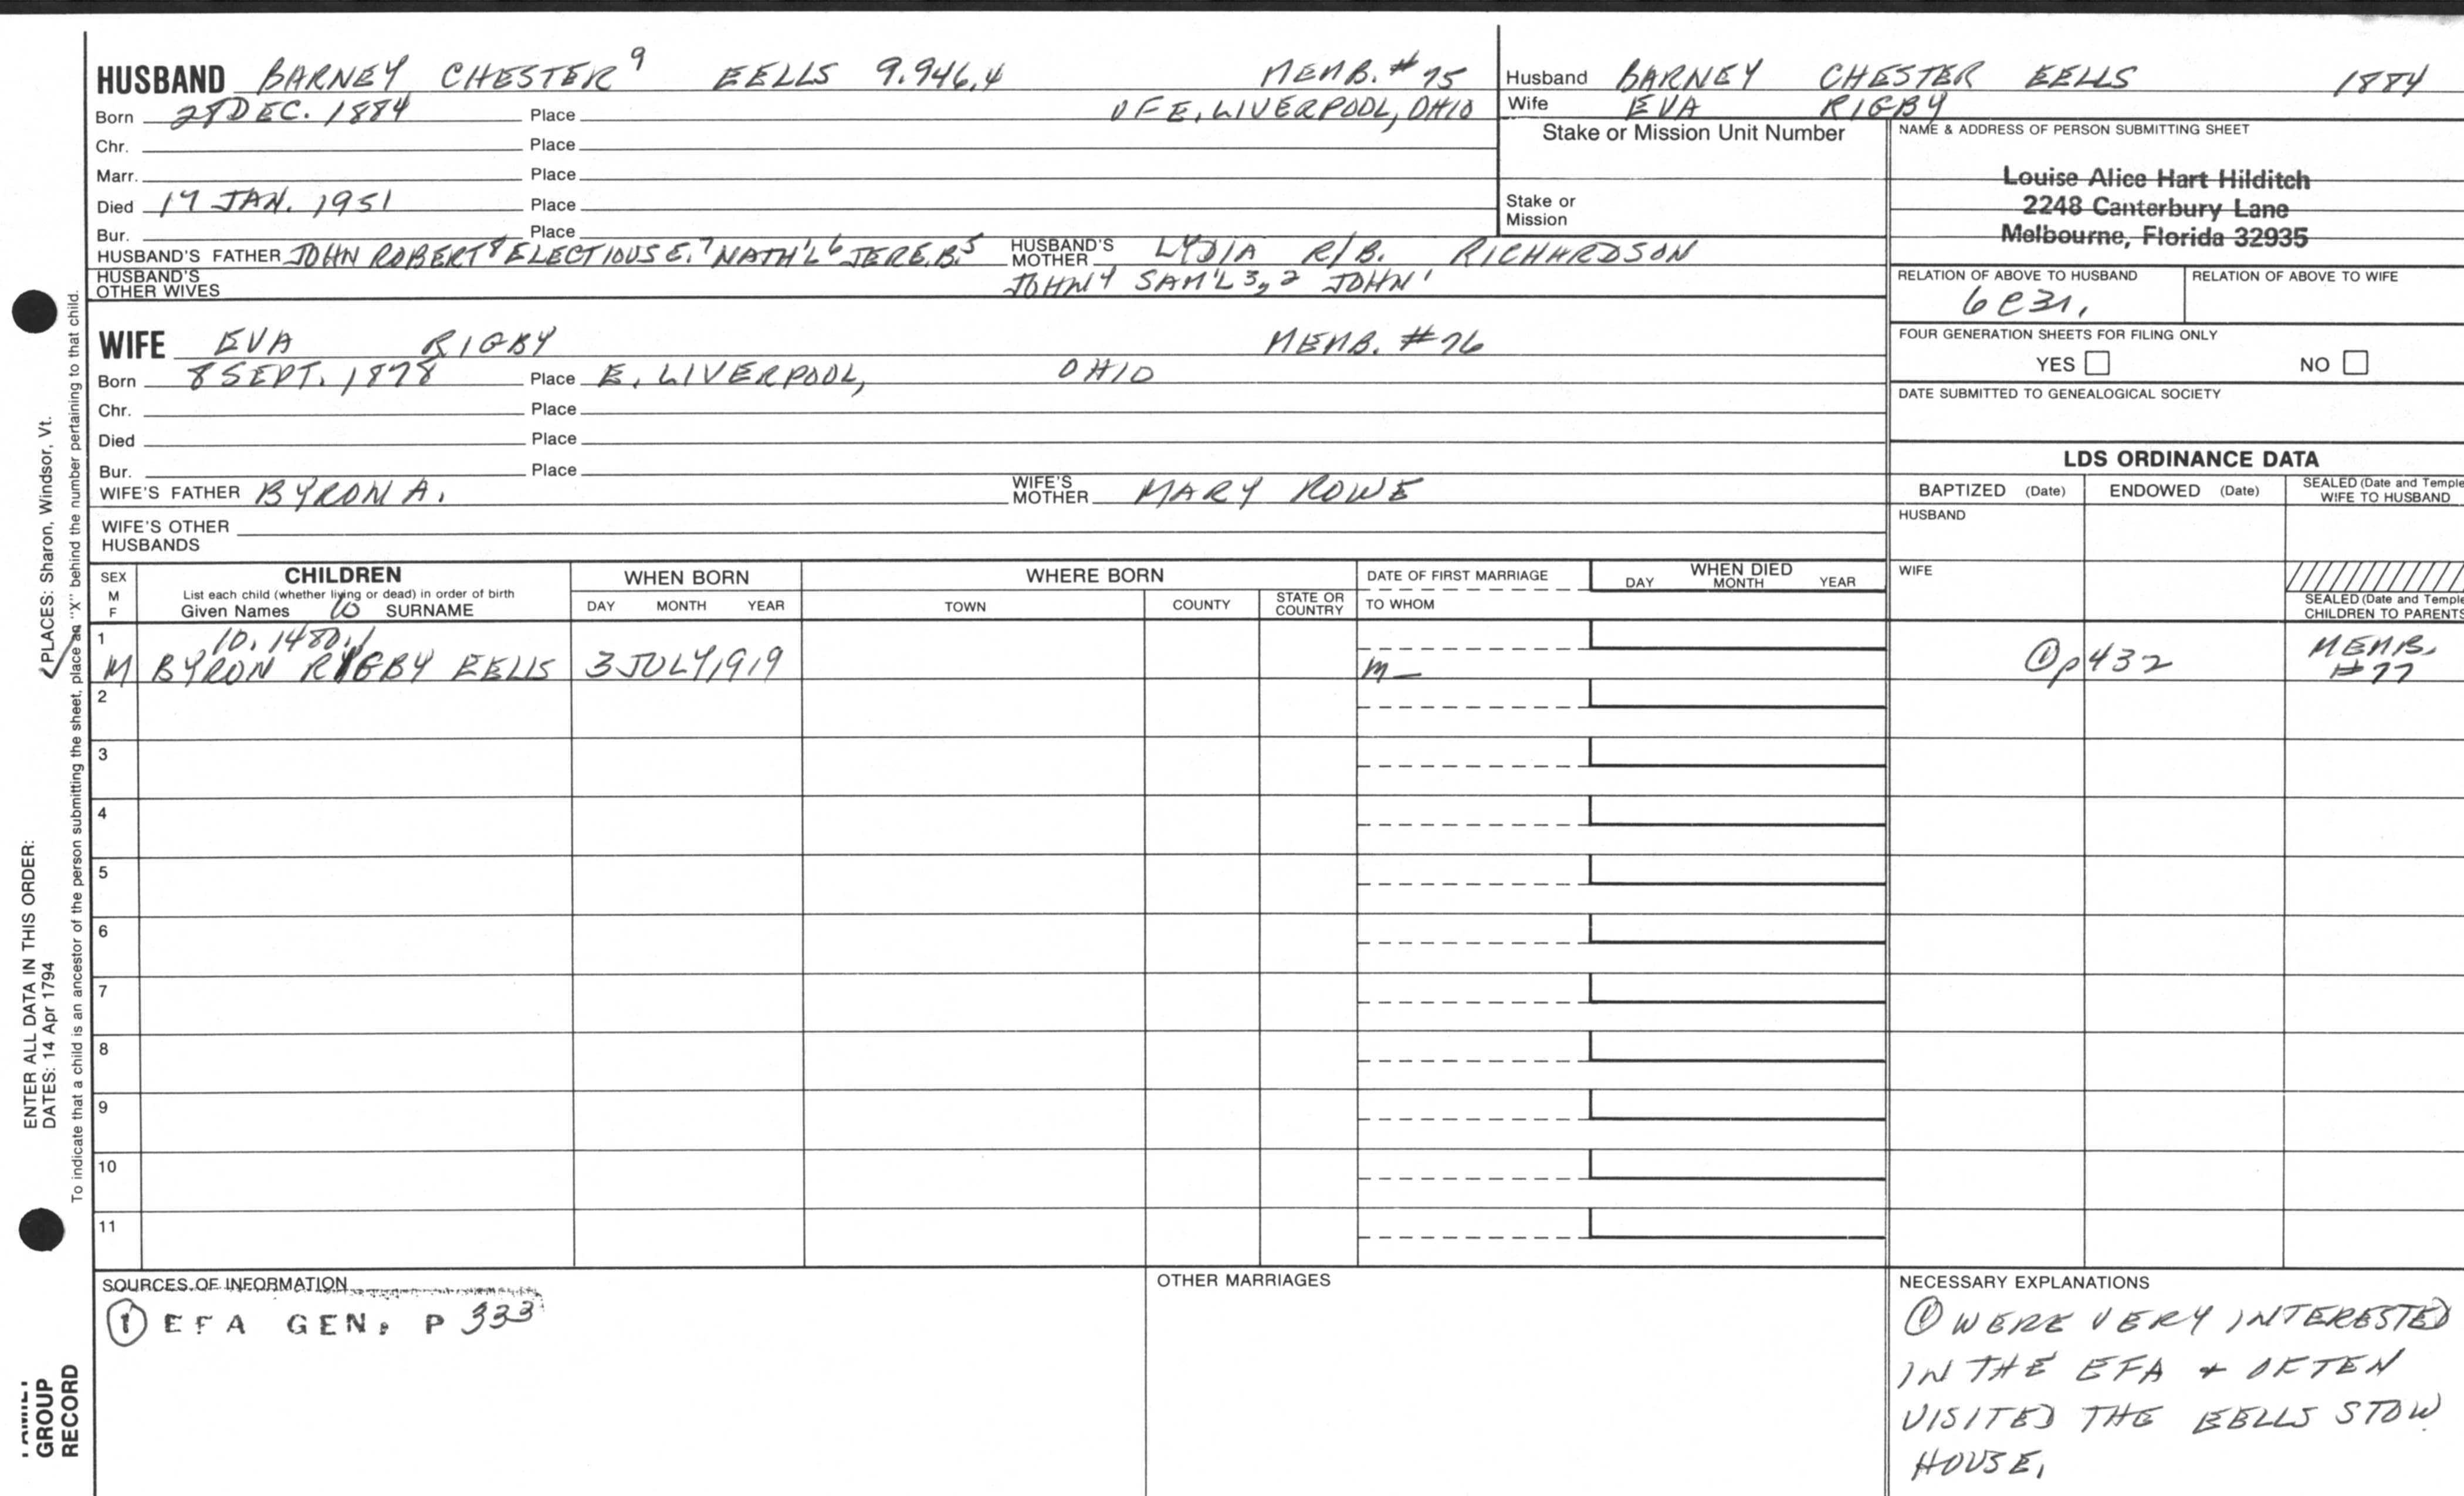 HUSBAND BARNEY CHESTER⁹ EELLS 9.946.4 MEMB. #75
Born 28 DEC. 1884 Place OF E. LIVERPOOL, OHIO
Chr. Place
Marr. Place
Died 17 JAN. 1951 Place
Bur. Place
HUSBAND'S FATHER JOHN ROBERT⁸ ELECTIOUS E.⁷ NATH'L⁶ JERE.B.⁵ HUSBAND'S MOTHER LYDIA R/B. RICHARDSON
HUSBAND'S OTHER WIVES JOHN⁴ SAM'L 3,2 JOHN¹
Husband BARNEY CHESTER EELLS 1884
Wife EVA RIGBY
Stake or Mission Unit Number
Stake or Mission
NAME & ADDRESS OF PERSON SUBMITTING SHEET
Louise Alice Hart Hilditch
2248 Canterbury Lane
Melbourne, Florida 32935
RELATION OF ABOVE TO HUSBAND RELATION OF ABOVE TO WIFE
6C3r,
FOUR GENERATION SHEETS FOR FILING ONLY
YES NO
DATE SUBMITTED TO GENEALOGICAL SOCIETY
WIFE EVA RIGBY MEMB. #76
Born 8 SEPT. 1878 Place E. LIVERPOOL, OHIO
Chr. Place
Died Place
Bur. Place
WIFE'S FATHER BYRON A. WIFE'S MOTHER MARY ROWE
WIFE'S OTHER HUSBANDS
LDS ORDINANCE DATA
BAPTIZED (Date) ENDOWED (Date) SEALED (Date and Temple WIFE TO HUSBAND
HUSBAND
WIFE
SEALED (Date and Temple CHILDREN TO PARENTS
SEX M F CHILDREN WHEN BORN WHERE BORN DATE OF FIRST MARRIAGE WHEN DIED
List each child (whether living or dead) in order of birth
Given Names 10 SURNAME DAY MONTH YEAR TOWN COUNTY STATE OR COUNTRY TO WHOM DAY MONTH YEAR
1 10.1480.1
M BYRON RIGBY EELLS 3 JULY 1919 m— ① p432 MEMB. #77
2
3
4
5
6
7
8
9
10
11
SOURCES OF INFORMATION
① EFA GEN. P 333
OTHER MARRIAGES
NECESSARY EXPLANATIONS
① WERE VERY INTERESTED
IN THE EFA + OFTEN
VISITED THE EELLS STOW
HOUSE.
ENTER ALL DATA IN THIS ORDER: PLACES: Sharon, Windsor, Vt.
DATES: 14 Apr 1794
To indicate that a child is an ancestor of the person submitting the sheet, place an "X" behind the number pertaining to that child.
FAMILY
GROUP
RECORD